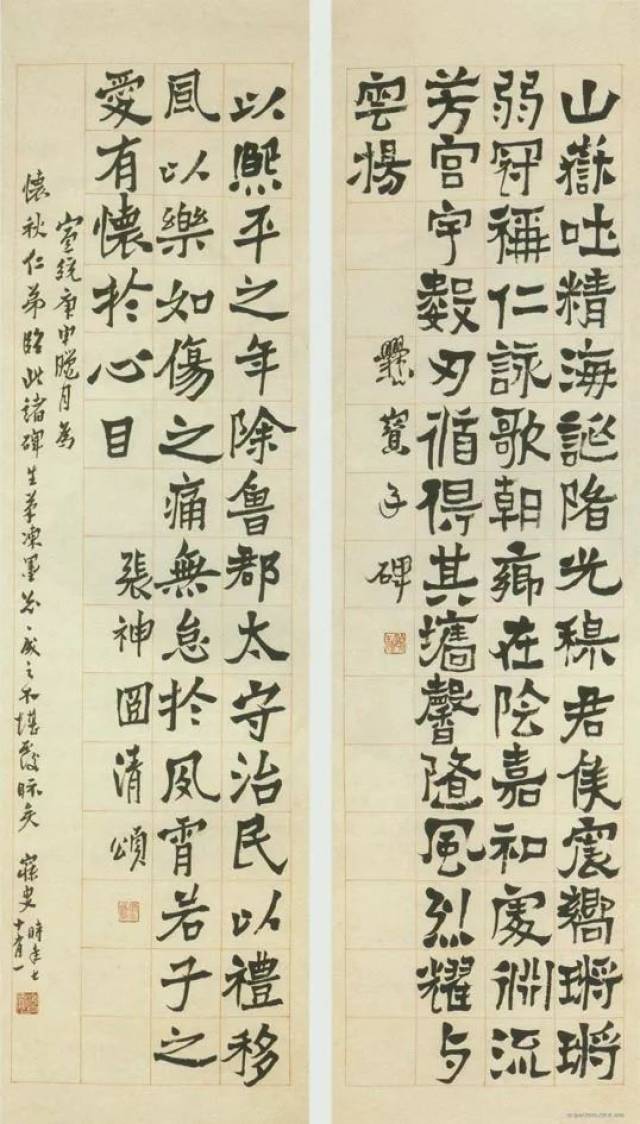 山嶽吐精海誕陼光穆君侯震嚮鏘鏘
弱冠稱仁詠歌朝鄉在陰嘉和處淵流
芳宮宇數刃循得其牆馨隨風烈耀与
雲揚
爨寶子碑
以熙平之年除魯郡太守治民以禮移
風以樂如傷之痛無怠於夙宵若子之
愛有懷於心目
張神冏清頌
宣統庚申臘月為
懷秋仁弟臨此諸碑生筆凍墨忽〻成之不堪覆眎矣 寐叟時年七
十有一